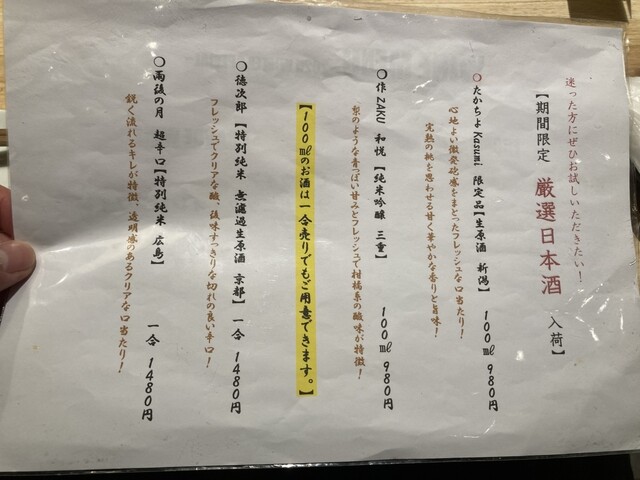 迷った方にぜひお試しいただきたい！
【期間限定 厳選日本酒 入荷】
○たかちよ Kasumi 限定品【生原酒 新潟】 100㎖ 980円
心地よい微発泡感をまとったフレッシュな口当たり！
完熟の桃を思わせる甘く華やかな香りと旨味！
○作ZAKU 和悦【純米吟醸 三重】 100㎖ 980円
梨のような青っぽい甘みとフレッシュで柑橘系の酸味が特徴！
【100㎖のお酒は一合売りでもご用意できます。】
○徳次郎【特別純米 無濾過生原酒 京都】 一合 1480円
フレッシュでクリアな酸、後味すっきりな切れの良い辛口！
○雨後の月 超辛口【特別純米 広島】 一合 1480円
鋭く流れるキレが特徴、透明感のあるクリアな口当たり！